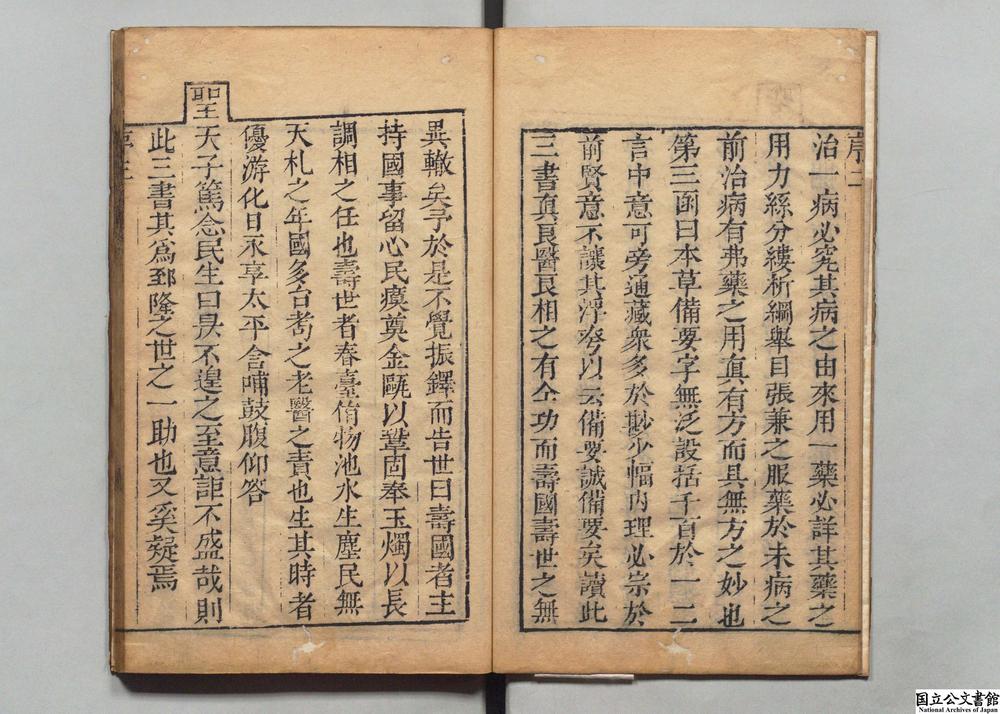 序二
治一病必究其病之由來用一藥必詳其藥之
用力絲分縷析綱舉目張兼之服藥於未病之
前治病有弗藥之用眞有方而具無方之妙也
第三函曰本草備要字無泛設括千百於一二
言中意可旁通藏衆多於尠少幅內理必宗於
前賢意不讓其浮夸以云備要誠備要矣讀此
三書眞良醫良相之有仝功而壽國壽世之無
異轍矣予於是不覺振鐸而告世曰壽國者主
持國事留心民瘼奠金甌以鞏固奉玉燭以長
調相之任也壽世者春臺偹物池水生塵民無
夭札之年國多台耇之老醫之責也生其時者
優游化日永享太平含哺鼓腹仰答
聖天子篤念民生日昃不遑之至意詎不盛哉則
此三書其爲郅隆之世之一助也又奚疑焉
序三
国立公文書館
National Archives of Japan